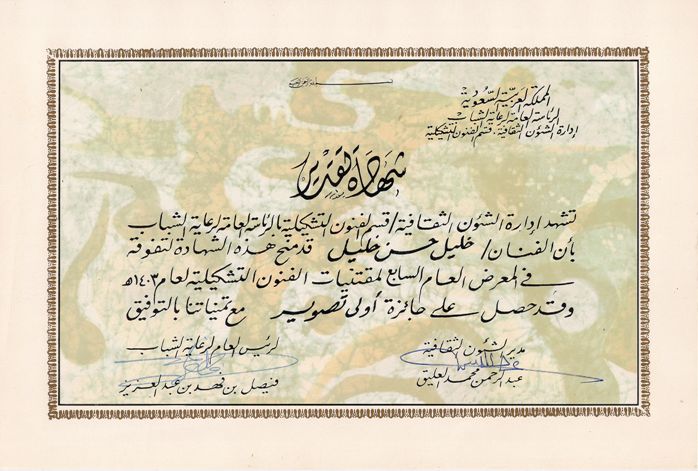 بسم الله الرحمن الرحيم
المملكة العربية السعودية
الرئاسة العامة لرعاية الشباب
إدارة الشئون الثقافية . قسم الفنون التشكيلية
شهادة تقدير
تشهد إدارة الشئون الثقافية / قسم الفنون التشكيلية بالرئاسة العامة لرعاية الشباب
بأن الفنان / خليل حسن خليل قد منح هذه الشهادة لتفوقه
في المعرض العام السابع لمقتنيات الفنون التشكيلية لعام ١٤٠٣هـ
وقد حصل على جائزة أولى تصوير مع تمنياتنا بالتوفيق
مدير الشئون الثقافية
عبدالرحمن محمد العليق
الرئيس العام لرعاية الشباب
فيصل بن فهد بن عبدالعزيز